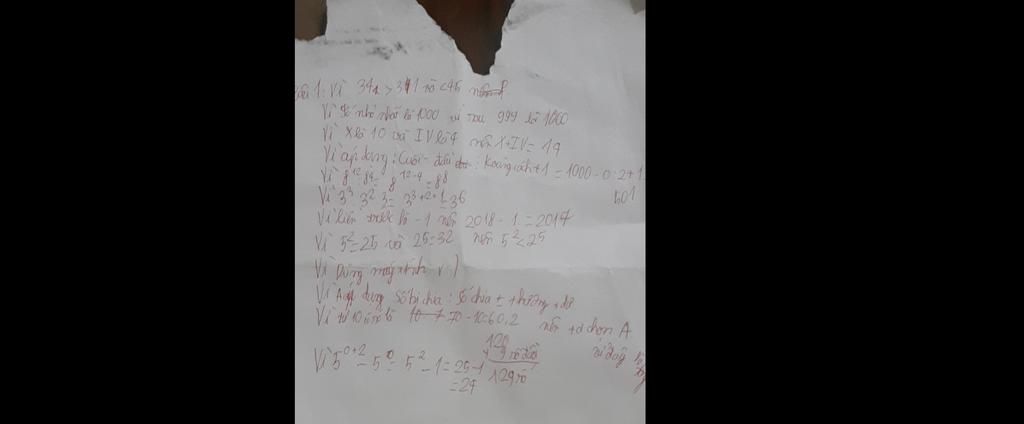 1: Vì 341 > 311 và < 45
Vì số nhỏ nhất là 1000 và sau 999 là 1000
Vì X là 10 và IV là 4 nên X+IV= 14
Vì áp dụng: Cuối - đầu : Khoảng cách + 1 = 1000 - 0 : 2 + 1
501
Vì 8^12: 8^4= 8^12-4=8^8
Vì 3^3. 3^2. 3= 3^3+2+1=3^6
Vì liền trước là -1 nên 2018 - 1 = 2017
Vì 5^2=25 và 2^5=32 nên 5^2<2^5
Vì Dùng máy tính
Vì Áp dụng Số bị chia : Số chia = thương + dư
Vì từ là 70 - 10=60.2 nên chọn A
120
129
Vì 5^0+2 - 5^0= 5^2 - 1 = 25-1
=24